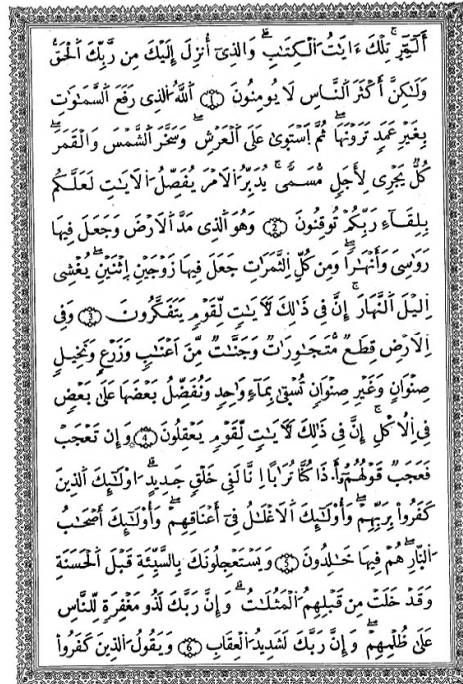 أَلَٓمِّٓرۖ تِلْكَ ءَايَٰتُ اُ۬لْكِتَٰبِۖ وَالذِےٓ أُنزِلَ إِلَيْكَ مِن رَّبِّكَ اَ۬لْحَقُّ
وَلَٰكِنَّ أَكْثَرَ اَ۬لنَّاسِ لَا يُومِنُونَ ۝ اَ۬للَّهُ اُ۬لذِے رَفَعَ اَ۬لسَّمَٰوَٰتِ
بِغَيْرِ عَمَدٖ تَرَوْنَهَاۖ ثُمَّ اَ۪سْتَوَىٰ عَلَى اَ۬لْعَرْشِۖ وَسَخَّرَ اَ۬لشَّمْسَ وَالْقَمَرَۖ
كُلّٞ يَجْرِے لِأَجَلٖ مُّسَمّٗىۖ يُدَبِّرُ اُ۬لَامْرَ يُفَصِّلُ اُ۬لْأيَٰتِ لَعَلَّكُم
بِلِقَآءِ رَبِّكُمْ تُوقِنُونَ ۝ وَهُوَ اَ۬لذِے مَدَّ اَ۬لَارْضَ وَجَعَلَ فِيهَا
رَوَٰسِيَ وَأَنْهَٰراٗۖ وَمِن كُلِّ اِ۬لثَّمَرَٰتِ جَعَلَ فِيهَا زَوْجَيْنِ اِ۪ثْنَيْنِۖ يُغْشِے
اِ۬ليْلَ اَ۬لنَّهَارَۖ إِنَّ فِے ذَٰلِكَ لَأٓيَٰتٖ لِّقَوْمٖ يَتَفَكَّرُونَ ۝ وَفِے
اِ۬لَارْضِ قِطَعٞ مُّتَجَٰوِرَٰتٞ وَجَنَّٰتٞ مِّنَ اَعْنَٰبٖ وَزَرْعٖ وَنَخِيلٖ
صِنْوَانٖ وَغَيْرِ صِنْوَانٖ تُسْقَىٰ بِمَآءٖ وَٰحِدٖ وَنُفَضِّلُ بَعْضَهَا عَلَىٰ بَعْضٖ
فِے اِ۬لُاكْلِۖ إِنَّ فِے ذَٰلِكَ لَأٓيَٰتٖ لِّقَوْمٖ يَعْقِلُونَ ۝ وَإِن تَعْجَبْ
فَعَجَبٞ قَوْلُهُمُۥٓ أَ.ذَا كُنَّا تُرَٰباً اِنَّا لَفِے خَلْقٖ جَدِيدٍۖ ا۟وْلَٰٓئِكَ اَ۬لذِينَ
كَفَرُواْ بِرَبِّهِمْۖ وَأُوْلَٰٓئِكَ اَ۬لَاغْلَٰلُ فِےٓ أَعْنَاقِهِمْۖ وَأُوْلَٰٓئِكَ أَصْحَٰبُ
اُ۬لنّ۪ارِۖ هُمْ فِيهَا خَٰلِدُونَ ۝ وَيَسْتَعْجِلُونَكَ بِالسَّيِّئَةِ قَبْلَ اَ۬لْحَسَنَةِ
وَقَدْ خَلَتْ مِن قَبْلِهِمُ اُ۬لْمَثُلَٰتُۖ وَإِنَّ رَبَّكَ لَذُو مَغْفِرَةٖ لِّلنَّاسِ
عَلَىٰ ظُلْمِهِمْۖ وَإِنَّ رَبَّكَ لَشَدِيدُ اُ۬لْعِقَابِ ۝ وَيَقُولُ اُ۬لذِينَ كَفَرُواْ